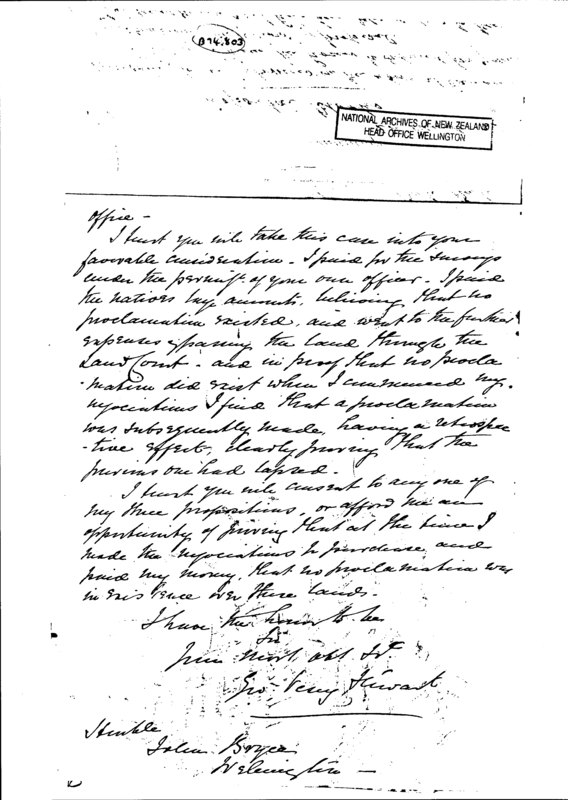 B74.803
NATIONAL ARCHIVES OF NEW ZEALAND
HEAD OFFICE WELLINGTON
office -
I trust you will take this case into your
favorable consideration - I paid for the surveys
under the permit of your own officer - I paid
the natives large amounts, believing that no
proclamation existed, and went to the further
expenses of passing the land through the
Land Court - and in proof that no procla
-mation did exist when I commenced my
negociations I find that a proclamation
was subsequently made, having a retrospec
-tive effect, clearly proving that the
previous one had lapsed.
I trust you will consent to any one of
my three propositions, or afford me an
opportunity of proving that at the time I
made the negociations to purchase, and
paid my money, that no proclamation was
in existence over these lands.
I have the honor to be
Sir
Your most obt St.
Geo Vesey Stewart
Honble
John Bryce
Wellington -